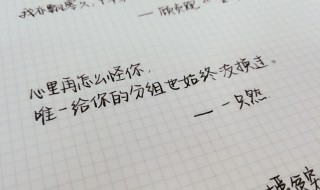 心里再怎么怪你,
唯一给你的分组也始终没换过。
——一只然